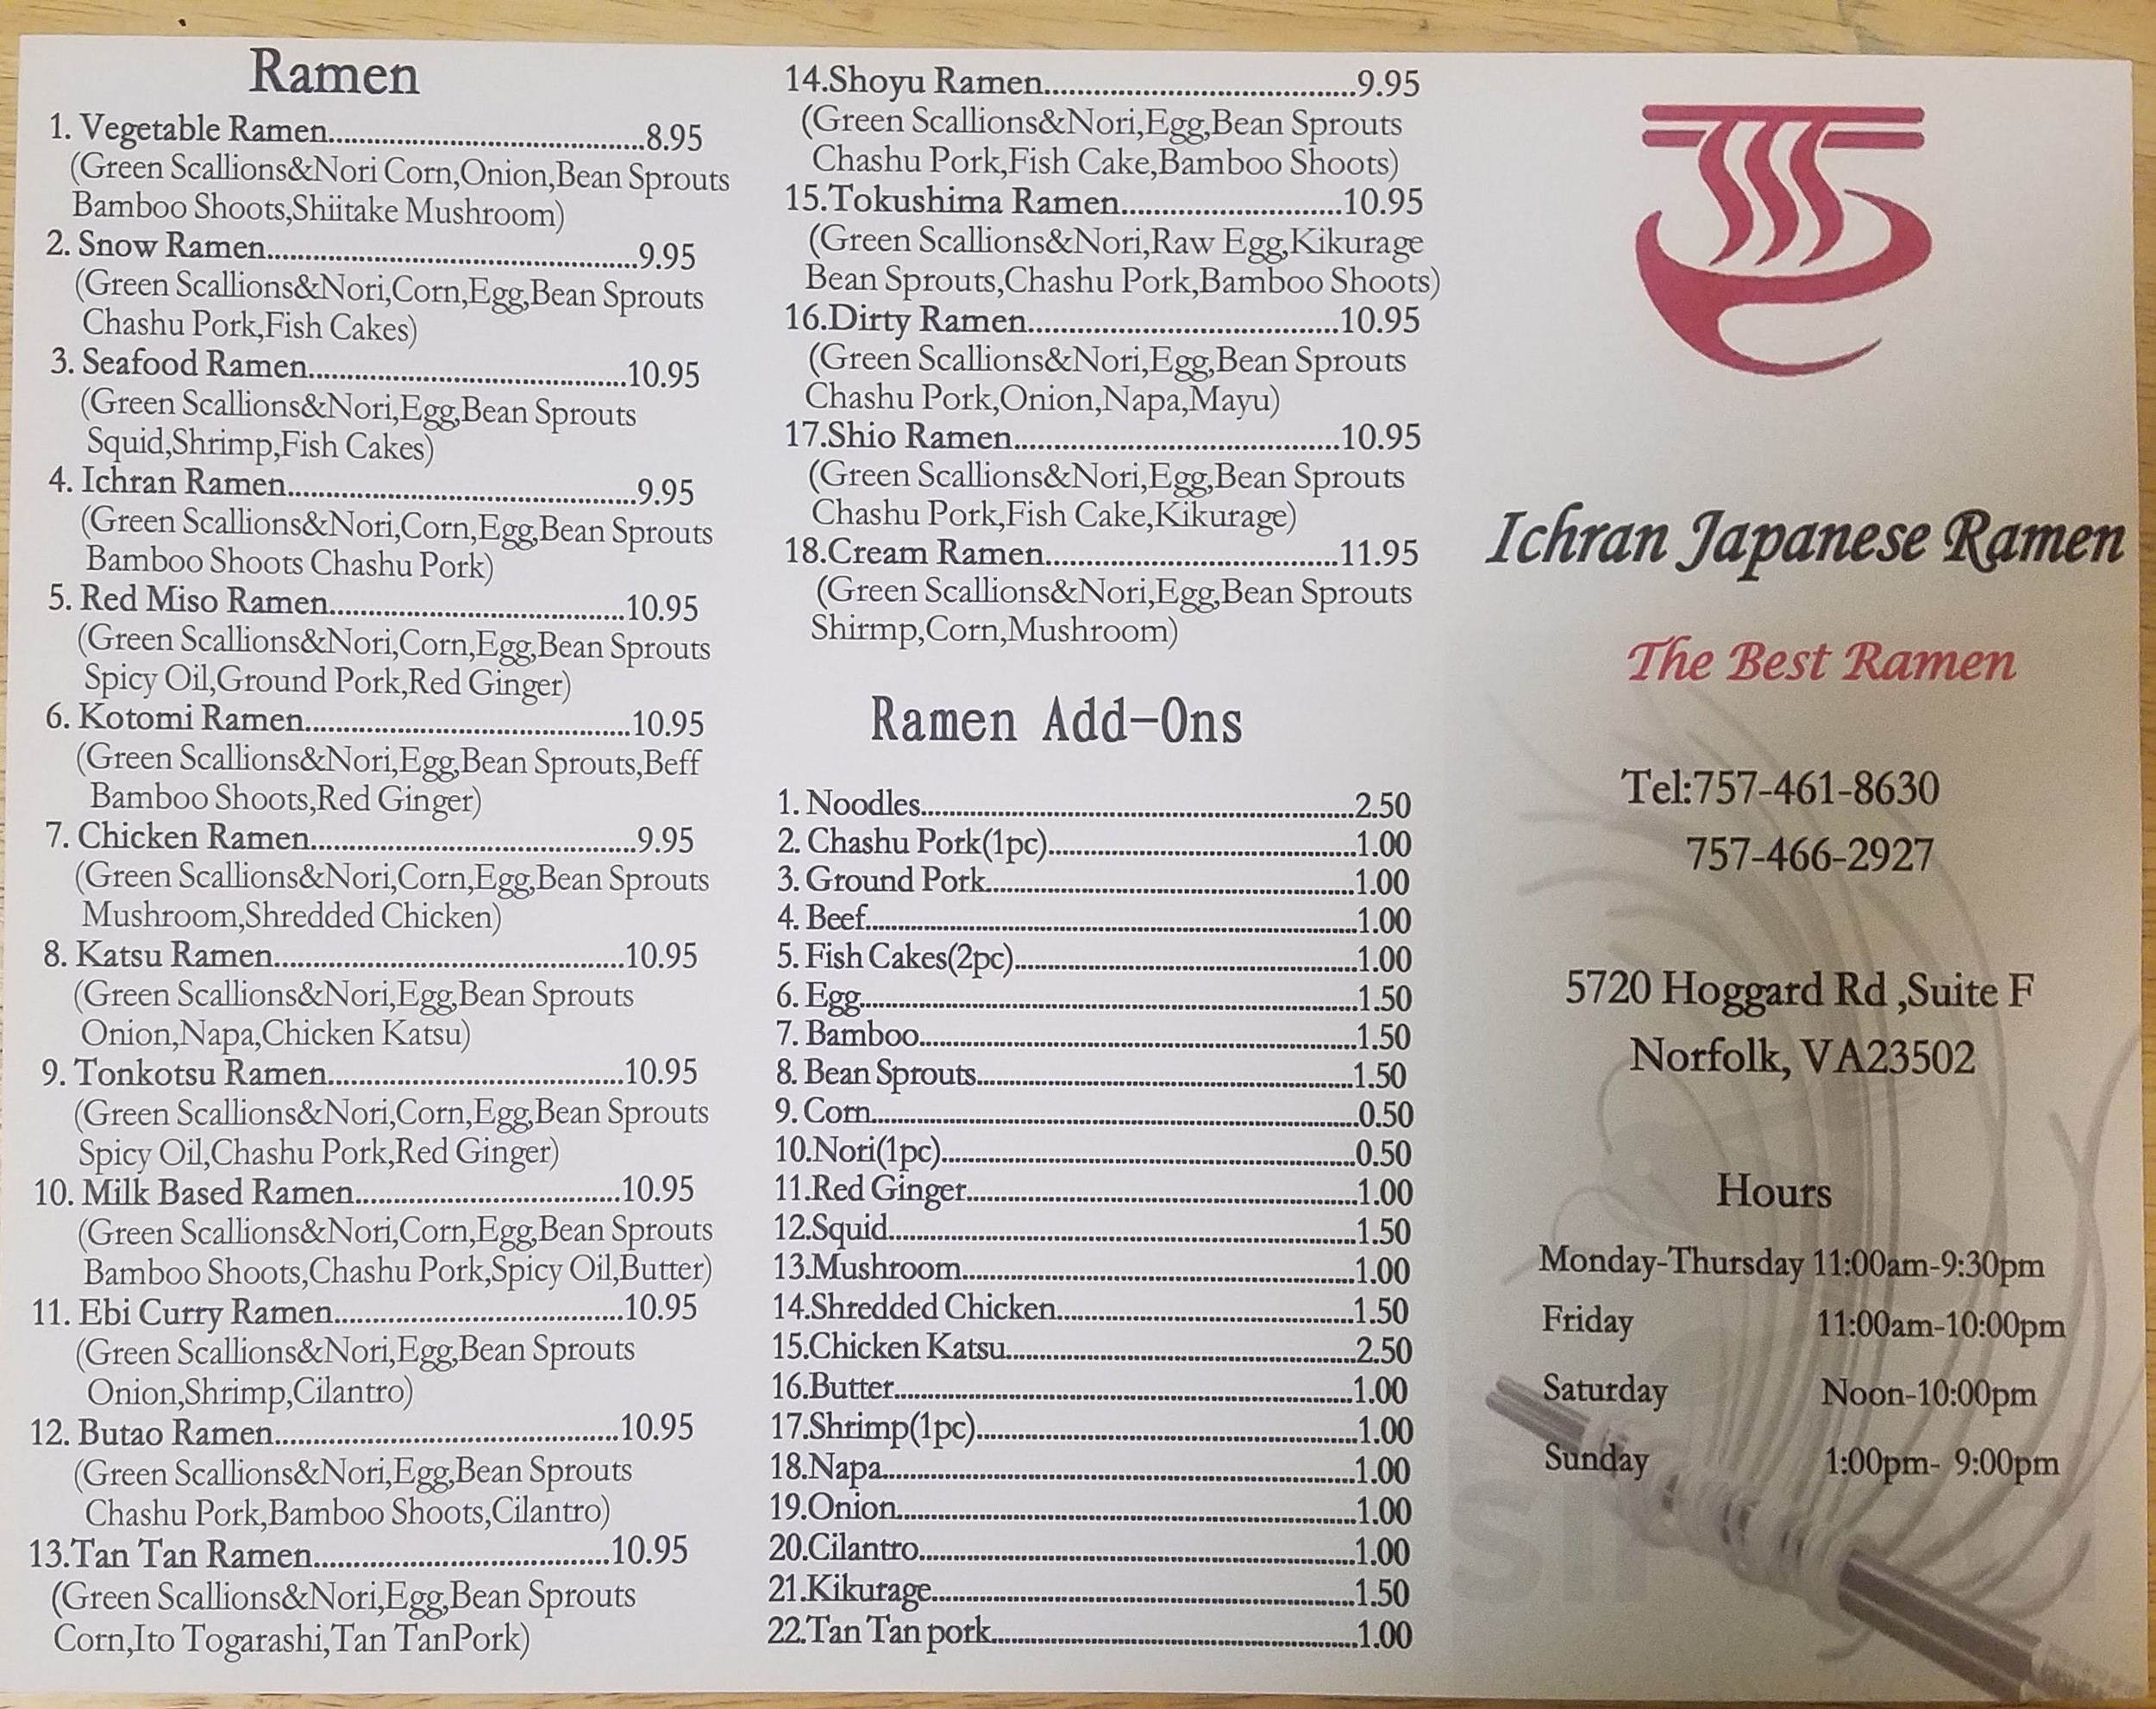 Ramen
1. Vegetable Ramen........................................8.95
(Green Scallions&Nori Corn,Onion,Bean Sprouts
Bamboo Shoots,Shiitake Mushroom)
2. Snow Ramen...............................................9.95
(Green Scallions&Nori,Corn,Egg,Bean Sprouts
Chashu Pork,Fish Cakes)
3. Seafood Ramen........................................10.95
(Green Scallions&Nori,Egg,Bean Sprouts
Squid,Shrimp,Fish Cakes)
4. Ichran Ramen............................................9.95
(Green Scallions&Nori,Corn,Egg,Bean Sprouts
Bamboo Shoots Chashu Pork)
5. Red Miso Ramen.....................................10.95
(Green Scallions&Nori,Corn,Egg,Bean Sprouts
Spicy Oil,Ground Pork,Red Ginger)
6. Kotomi Ramen.........................................10.95
(Green Scallions&Nori,Egg,Bean Sprouts,Beff
Bamboo Shoots,Red Ginger)
7. Chicken Ramen.........................................9.95
(Green Scallions&Nori,Corn,Egg,Bean Sprouts
Mushroom,Shredded Chicken)
8. Katsu Ramen............................................10.95
(Green Scallions&Nori,Egg,Bean Sprouts
Onion,Napa,Chicken Katsu)
9. Tonkotsu Ramen.....................................10.95
(Green Scallions&Nori,Corn,Egg,Bean Sprouts
Spicy Oil,Chashu Pork,Red Ginger)
10. Milk Based Ramen.................................10.95
(Green Scallions&Nori,Corn,Egg,Bean Sprouts
Bamboo Shoots,Chashu Pork,Spicy Oil,Butter)
11. Ebi Curry Ramen....................................10.95
(Green Scallions&Nori,Egg,Bean Sprouts
Onion,Shrimp,Cilantro)
12. Butao Ramen...........................................10.95
(Green Scallions&Nori,Egg,Bean Sprouts
Chashu Pork,Bamboo Shoots,Cilantro)
13.Tan Tan Ramen.....................................10.95
(Green Scallions&Nori,Egg,Bean Sprouts
Corn,Ito Togarashi,Tan TanPork)
14.Shoyu Ramen......................................9.95
(Green Scallions&Nori,Egg,Bean Sprouts
Chashu Pork,Fish Cake,Bamboo Shoots)
15.Tokushima Ramen...........................10.95
(Green Scallions&Nori,Raw Egg,Kikurage
Bean Sprouts,Chashu Pork,Bamboo Shoots)
16.Dirty Ramen......................................10.95
(Green Scallions&Nori,Egg,Bean Sprouts
Chashu Pork,Onion,Napa,Mayu)
17.Shio Ramen........................................10.95
(Green Scallions&Nori,Egg,Bean Sprouts
Chashu Pork,Fish Cake,Kikurage)
18.Cream Ramen....................................11.95
(Green Scallions&Nori,Egg,Bean Sprouts
Shirmp,Corn,Mushroom)
Ramen Add-Ons
1. Noodles......................................................2.50
2. Chashu Pork(1pc)......................................1.00
3. Ground Pork..............................................1.00
4. Beef.............................................................1.00
5. Fish Cakes(2pc)..........................................1.00
6. Egg..............................................................1.50
7. Bamboo......................................................1.50
8. Bean Sprouts...............................................1.50
9. Corn............................................................0.50
10.Nori(1pc)...................................................0.50
11.Red Ginger................................................1.00
12.Squid..........................................................1.50
13.Mushroom.................................................1.00
14.Shredded Chicken.....................................1.50
15.Chicken Katsu...........................................2.50
16.Butter.........................................................1.00
17.Shrimp(1pc)...............................................1.00
18.Napa...........................................................1.00
19.Onion.........................................................1.00
20.Cilantro......................................................1.00
21.Kikurage.....................................................1.50
22.Tan Tan pork.............................................1.00
Ichran Japanese Ramen
The Best Ramen
Tel:757-461-8630
757-466-2927
5720 Hoggard Rd ,Suite F
Norfolk, VA23502
Hours
Monday-Thursday 11:00am-9:30pm
Friday 11:00am-10:00pm
Saturday Noon-10:00pm
Sunday 1:00pm- 9:00pm